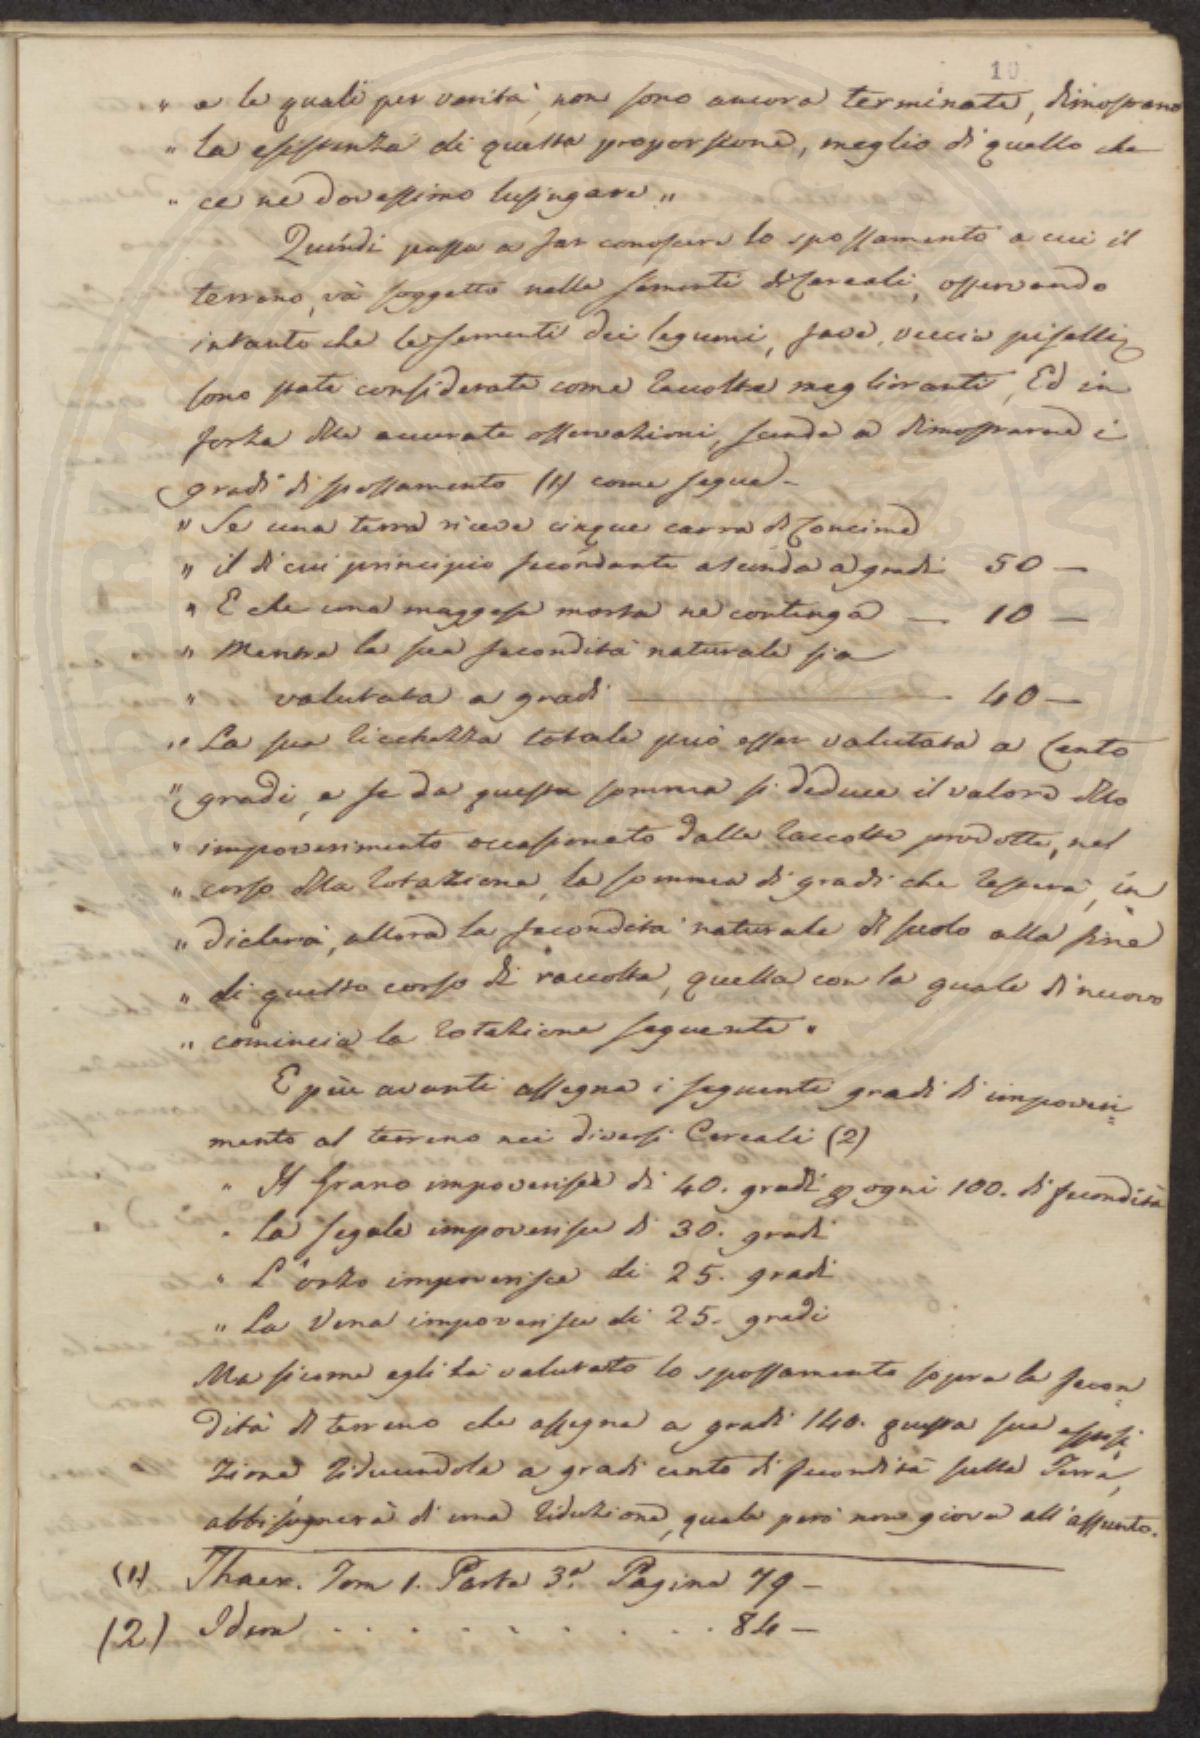 10
„ e le quali per verità, non sono ancora terminate, dimostrano
„ la esistenza di questa proporzione, meglio di quello che
„ ce ne dovessimo lusingare „
Quindi passa a far conoscere lo spossamento a cui il
terreno, và soggetto nelle sementi di Cereali, osservando
intanto che le sementi dei legumi, fave, veccia piselli
sono state considerate come raccolte meglioranti, Ed in
forza delle accurate osservazioni, scende a dimostrarne i
gradi di spossamento (1) come segue –
„ Se una terra riceve cinque carra di Concime
„ il di cui principio fecondante ascenda a gradi 50 —
„ E che una maggese morta ne contenga — 10 —
„ Mentre la sua fecondità naturale sia
„ valutata a gradi ——— 40 —
„ La sua ricchezza totale può esser valutata a Cento
„ gradi, e se da questa somma si deduce il valore dello
„ impoverimento occasionato dalle raccolte prodotte, nel
„ corso della rotazione, la somma di gradi che resterà, in
„ dicherà, allora la fecondità naturale del suolo alla fine
„ di questo corso di raccolta, quella con la quale di nuovo
„ comincia la rotazione seguente „
E più avanti assegna i seguenti gradi di impoveri=
mento al terreno nei diversi Cereali (2)
„ Il Grano impoverisce di 40. gradi ogni 100. di fecondità
„ La segale impoverisce di 30. gradi
„ L'orzo impoverisce di 25. gradi
„ La Vena impoverisce di 25. gradi
Ma sicome egli ha valutato lo spossamento sopra la fecon=
dità del terreno che assegna a gradi 140. questa sua esposi=
zione, riducendola a gradi cento di fecondità sulla Terra,
abbisognerà di una riduzione, quale però non giova all'assunto.
(1) Thaer. Tom 1. Parte 3ª. Pagina 79 –
(2) Idem . . . . . . . . . . 84 –